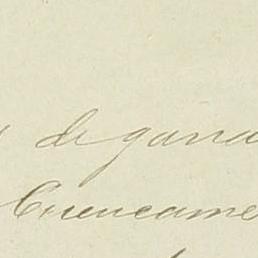 de gana
Cuencame